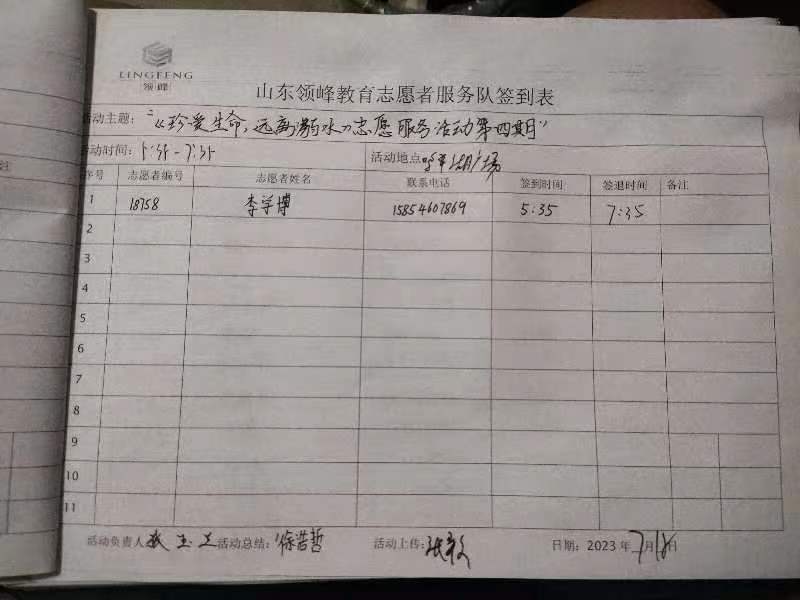 LINGFENG
领峰
山东领峰教育志愿者服务队签到表
活动主题："《珍爱生命，远离溺水》志愿服务活动第四期"
动时间：5:35-7:35 活动地点 广场
序号 志愿者编号 志愿者姓名 联系电话 签到时间 签退时间 备注
1 18758 李学博 15854607869 5:35 7:35
2
3
4
5
6
7
8
9
10
11
活动负责人 活动总结：徐浩哲 活动上传：张 日期：2023年7月18日
注